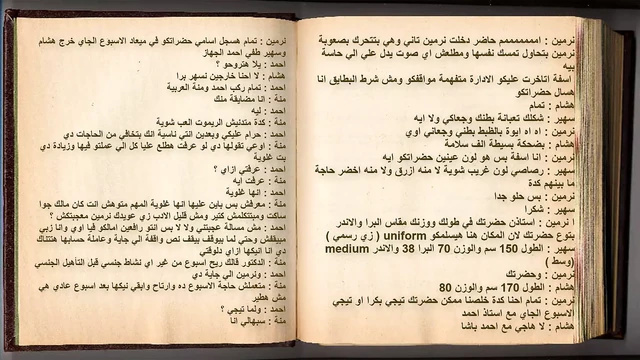 نرمين : اممممممم حاضر دخلت نرمين تاني وهي بتتحرك بصعوبة
نرمين بتحاول تمسك نفسها ومطلعش اي صوت يدل علي الي حاسة
بيه
اسفة اتاخرت عليكو الادارة متفهمة مواقفكو ومش شرط البطايق انا
هسال حضراتكو
هشام : تمام
سهير : شكلك تعبانة بطنك وجعاكي ولا ايه
نرمين : اه اه ايوة بالظبط بطني وجعاني اوي
هشام : بضحكة بسيطة الف سلامة
نرمين : انا اسفة بس هو لون عينين حضراتكو ايه
سهير : رصاصي لون غريب شوية لا منه ازرق ولا منه اخضر حاجة
ما بينهم كدة
نرمين : بس حلو جدا
سهير : شكرا
ا نرمين : استاذن حضرتك في طولك ووزنك مقاس البرا والاندر
بتوع حضرتك لان المكان هنا هيسلمكو uniform ( زي رسمي )
سهير : الطول 150 سم والوزن 70 البرا 38 والاندر medium
(وسط )
نرمين : وحضرتك
هشام : الطول 170 سم والوزن 80
نرمين : تمام احنا كدة خلصنا ممكن حضرتك تيجي بكرا او تيجي
الاسبوع الجاي مع استاذ احمد
هشام : لا هاجي مع احمد باشا
نرمين : تمام هسجل اسامي حضراتكو في ميعاد الاسبوع الجاي خرج هشام
وسهير طفي احمد الجهاز
احمد : يلا هتروحو ؟
هشام : لا احنا خارجين نسهر برا
احمد : تمام ركب احمد ومنة العربية
منة : انا مضايقة منك
احمد : ليه
منة : كدة متدنيش الريموت العب شوية
احمد : حرام عليكي وبعدين انتي ناسية انك بتخافي من الحاجات دي
منة : اوعي تقولها دي لو عرفت هطلع عليا كل الي عملتو فيها وزيادة دي
بت غلوية
احمد : عرفتي ازاي ؟
منة : عرفت ايه
احمد : انها غلوية
منة : معرفش بس باين عليها انها غلوية المهم متوهش انت كان مالك جوا
ساكت ومبتتكلمش كتير ومش قليل الادب زي عويدك نرمين معجبتكش ؟
احمد : مش مسالة عجبتني ولا لا بس انتو رافعين امالكو فيا اوي وانا زبي
مبيقفش وحتي لما بيوقف بيقف نص واقفة الي جاية وعاملة حسابها هتتناك
دي انا انيكها ازاي دلوقتي
منة : الدكتور قالك ريح اسبوع من غير اي نشاط جنسي قبل التأهيل الجنسي
احمد : ونرمين الي جاية دي
منة : متعملش حاجة الاسبوع ده وارتاح وابقي نيكها بعد اسبوع عادي هي
مش هطير
احمد : ولما تيجي ؟
منة : سبهالي انا